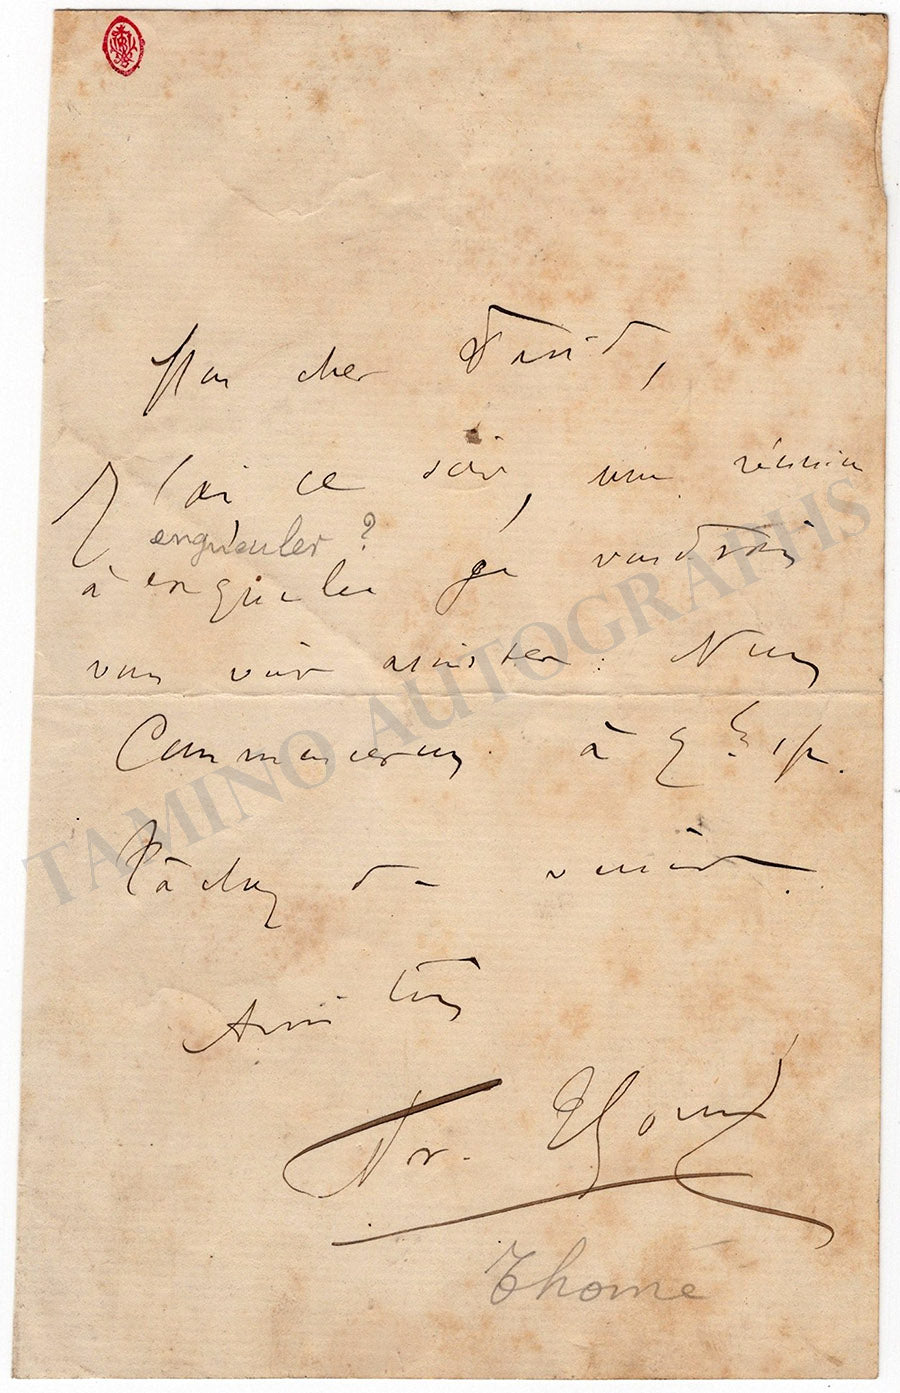 Mon cher David,
J'ai ce soir, une réunion
engueuler ?
à laquelle je voudrais
vous voir assister. Nous
Commencerons à 9 h 1/2.
Tâchez de venir.
Amitiés
Fr. Thomé
Thomé
TAMINO AUTOGRAPHS